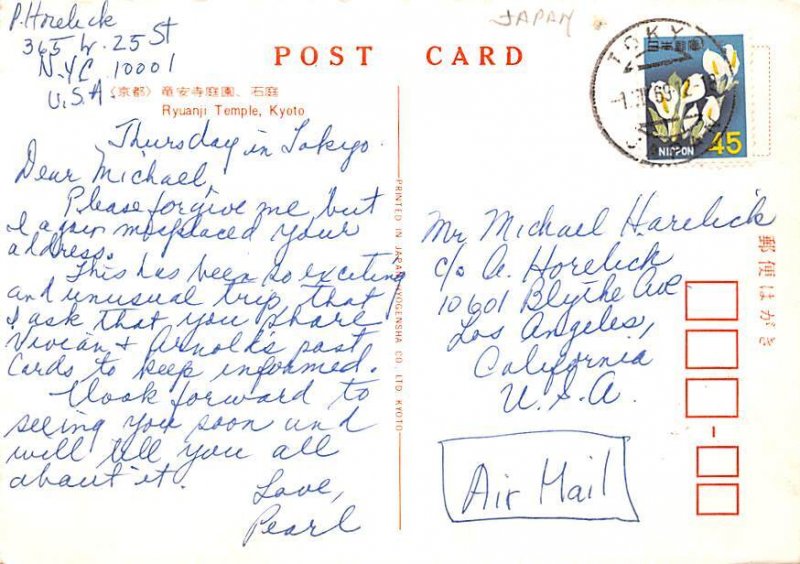 P. Horelick
365 W. 25 St
N.Y.C. 10001
U.S.A
JAPAN
POST CARD
(京都) 竜安寺庭園、石庭
Ryuanji Temple, Kyoto
Thursday in Tokyo.
Dear Michael,
Please forgive me, but
I again misplaced your
address.
This has been so exciting
and unusual trip that
I ask that you share
Vivian & Arnold's post
Cards to keep informed.
I look forward to
seeing you soon and
will tell you all
about it.
Love,
Pearl
PRINTED IN JAPAN HYOGENSHA CO., LTD. KYOTO
TOKYO
69
日本郵便
NIPPON 45
Mr. Michael Horelick
c/o A. Horelick
10601 Blythe Ave.
Los Angeles,
California
U.S.A.
Air Mail
郵便はがき